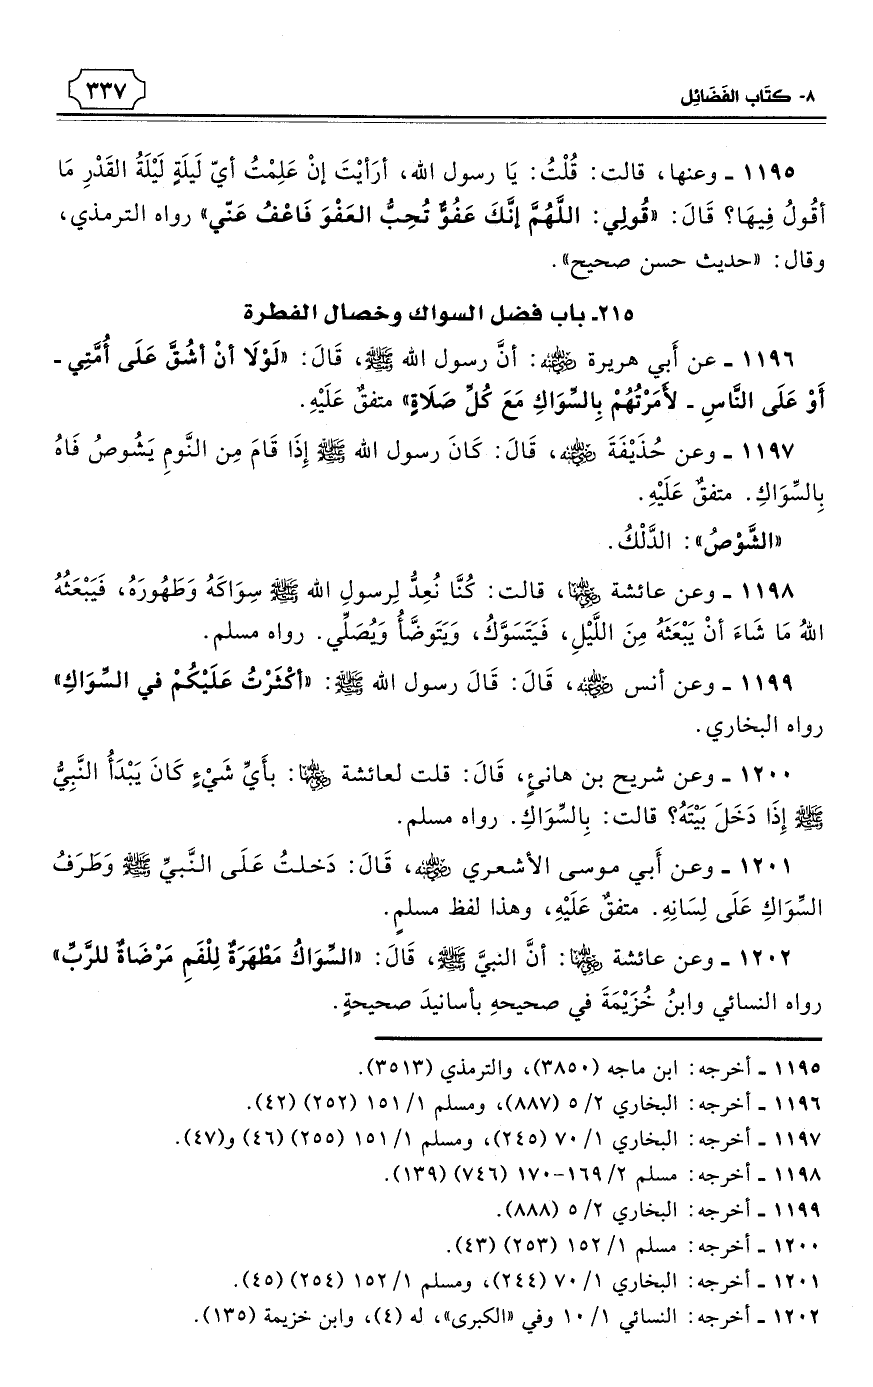 ٨- كتَاب الفَضَائِل
٣٣٧
١١٩٥ ـ وعنها، قالت: قُلْتُ: يَا رسول الله، أرَأيْتَ إنْ عَلِمْتُ أيّ لَيلَةٍ لَيْلَةُ القَدْرِ مَا
أقُولُ فِيهَا؟ قَالَ: «قُولِي: اللَّهُمَّ إنَّكَ عَفُوٌّ تُحِبُّ العَفْوَ فَاعْفُ عَنّي» رواه الترمذي،
وقال: «حديث حسن صحيح».
٢١٥ـ باب فضل السواك وخصال الفطرة
١١٩٦ ـ عن أَبي هريرة رضي الله عنه: أنَّ رسول الله ﷺ، قَالَ: «لَوْلَا أنْ أشُقَّ عَلَى أُمَّتِي ـ
أَوْ عَلَى النَّاسِ ـ لأَمَرْتُهُمْ بِالسِّوَاكِ مَعَ كُلِّ صَلَاةٍ» متفقٌ عَلَيْهِ.
١١٩٧ ـ وعن حُذَيْفَةَ رضي الله عنه، قَالَ: كَانَ رسول الله ﷺ إِذَا قَامَ مِن النَّومِ يَشُوصُ فَاهُ
بِالسِّوَاكِ. متفقٌ عَلَيْهِ.
«الشَّوْصُ»: الدَّلْكُ.
١١٩٨ ـ وعن عائشة رضي الله عنها، قالت: كُنَّا نُعِدُّ لِرسولِ الله ﷺ سِوَاكَهُ وَطَهُورَهُ، فَيَبْعَثُهُ
اللهُ مَا شَاءَ أنْ يَبْعَثَهُ مِنَ اللَّيْلِ، فَيَتَسَوَّكُ، وَيَتَوضَّأُ وَيُصَلِّي. رواه مسلم.
١١٩٩ ـ وعن أنس رضي الله عنه، قَالَ: قَالَ رسول الله ﷺ: «أكْثَرْتُ عَلَيْكُمْ في السِّوَاكِ»
رواه البخاري.
١٢٠٠ ـ وعن شريح بن هانئٍ، قَالَ: قلت لعائشة رضي الله عنها: بأَيِّ شَيْءٍ كَانَ يَبْدَأُ النَّبِيُّ
ﷺ إِذَا دَخَلَ بَيْتَهُ؟ قالت: بِالسِّوَاكِ. رواه مسلم.
١٢٠١ ـ وعن أَبي موسى الأشعري رضي الله عنه، قَالَ: دَخلتُ عَلَى النَّبيِّ ﷺ وَطَرَفُ
السِّوَاكِ عَلَى لِسَانِهِ. متفقٌ عَلَيْهِ، وهذا لفظ مسلمٍ.
١٢٠٢ ـ وعن عائشة رضي الله عنها: أنَّ النبيَّ ﷺ، قَالَ: «السِّوَاكُ مَطْهَرَةٌ لِلْفَمِ مَرْضَاةٌ للرَّبِّ»
رواه النسائي وابنُ خُزَيْمَةَ في صحيحهِ بأسانيدَ صحيحةٍ.
١١٩٥ ـ أخرجه: ابن ماجه (٣٨٥٠)، والترمذي (٣٥١٣).
١١٩٦ ـ أخرجه: البخاري ٢/ ٥ (٨٨٧)، ومسلم ١/ ١٥١ (٢٥٢) (٤٢).
١١٩٧ ـ أخرجه: البخاري ١/ ٧٠ (٢٤٥)، ومسلم ١/ ١٥١ (٢٥٥) (٤٦) و(٤٧).
١١٩٨ ـ أخرجه: مسلم ٢/ ١٦٩-١٧٠ (٧٤٦) (١٣٩).
١١٩٩ ـ أخرجه: البخاري ٢/ ٥ (٨٨٨).
١٢٠٠ ـ أخرجه: مسلم ١/ ١٥٢ (٢٥٣) (٤٣).
١٢٠١ ـ أخرجه: البخاري ١/ ٧٠ (٢٤٤)، ومسلم ١/ ١٥٢ (٢٥٤) (٤٥).
١٢٠٢ ـ أخرجه: النسائي ١/ ١٠ وفي «الكبرى»، له (٤)، وابن خزيمة (١٣٥).